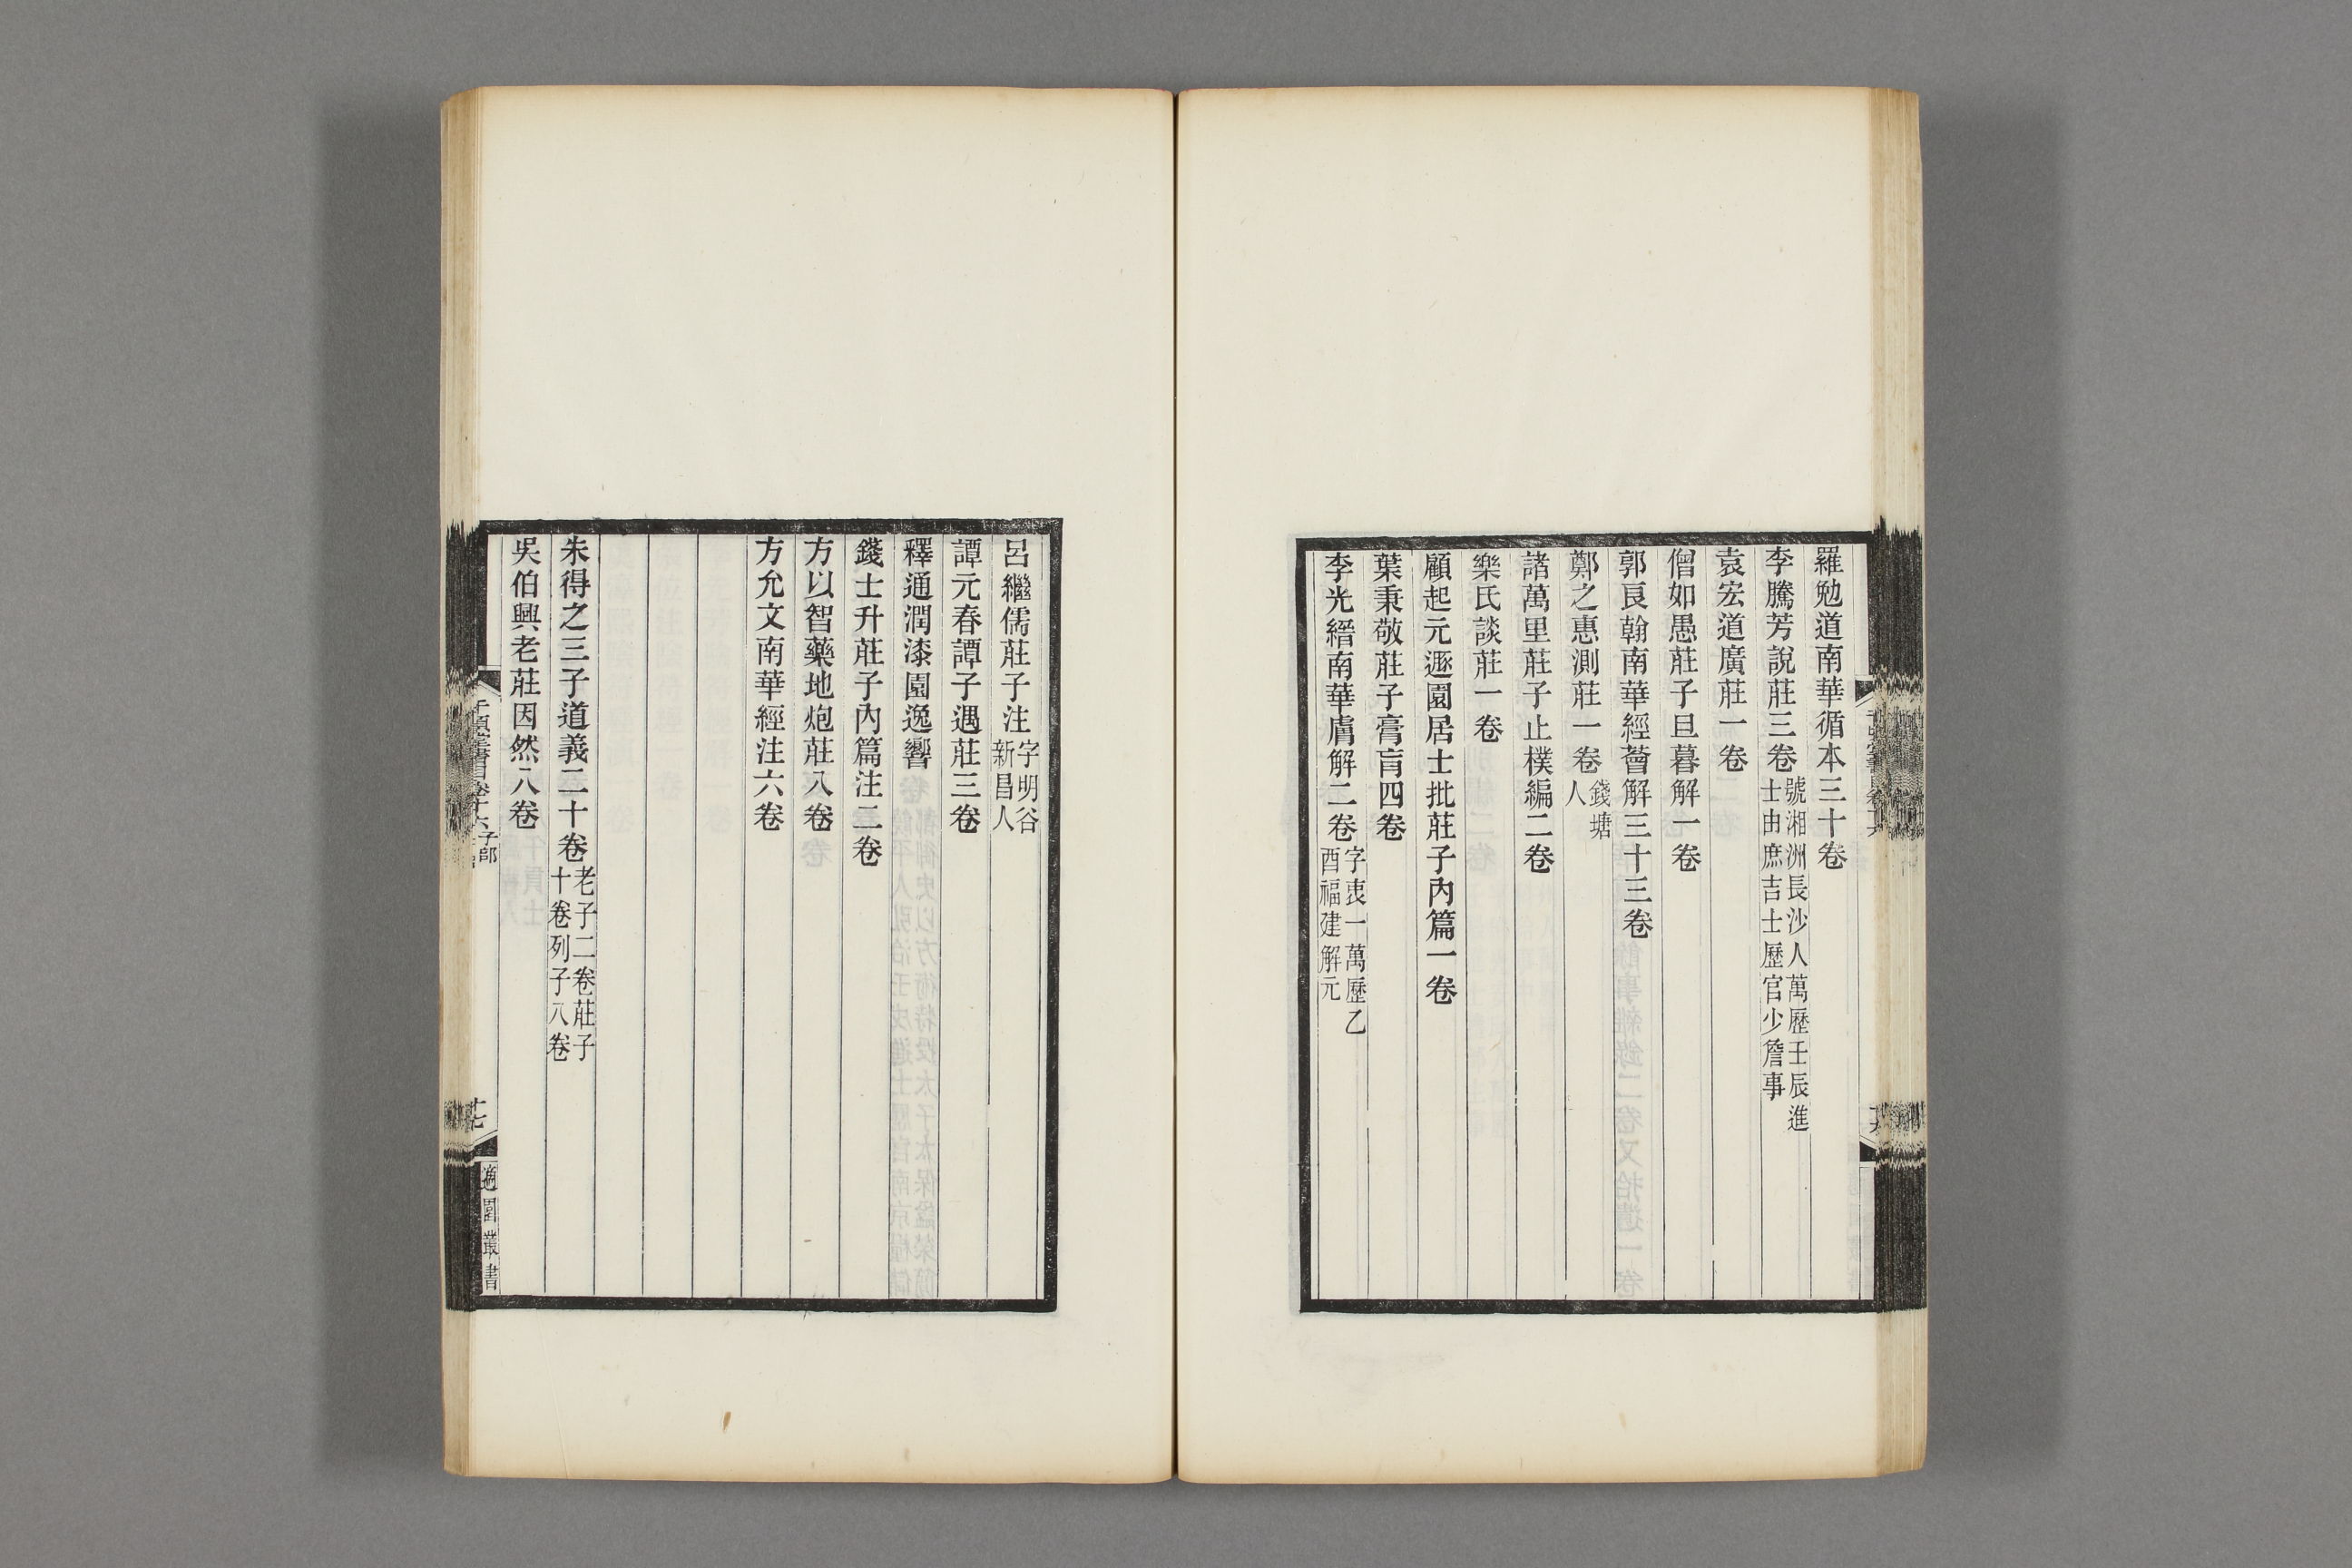 羅勉道南華循本三十卷
李騰芳說莊三卷號湘洲長沙人萬歷壬辰進士由庶吉士歷官少詹事
袁宏道廣莊一卷
僧如愚莊子旦暮解一卷
郭良翰南華經薈解三十三卷
鄭之惠測莊一卷錢塘人
諸萬里莊子止樸編二卷
樂氏談莊一卷
顧起元遯園居士批莊子內篇一卷
葉秉敬莊子膏肓四卷
李光縉南華膚解二卷字衷一萬歷乙酉福建解元
呂繼儒莊子注字明谷新昌人
譚元春譚子遇莊三卷
釋通潤漆園逸響
錢士升莊子內篇注二卷
方以智藥地炮莊八卷
方允文南華經注六卷
朱得之三子道義二十卷老子二卷莊子十卷列子八卷
吳伯興老莊因然八卷
千頃堂書目卷十六子部
十七
適園叢書